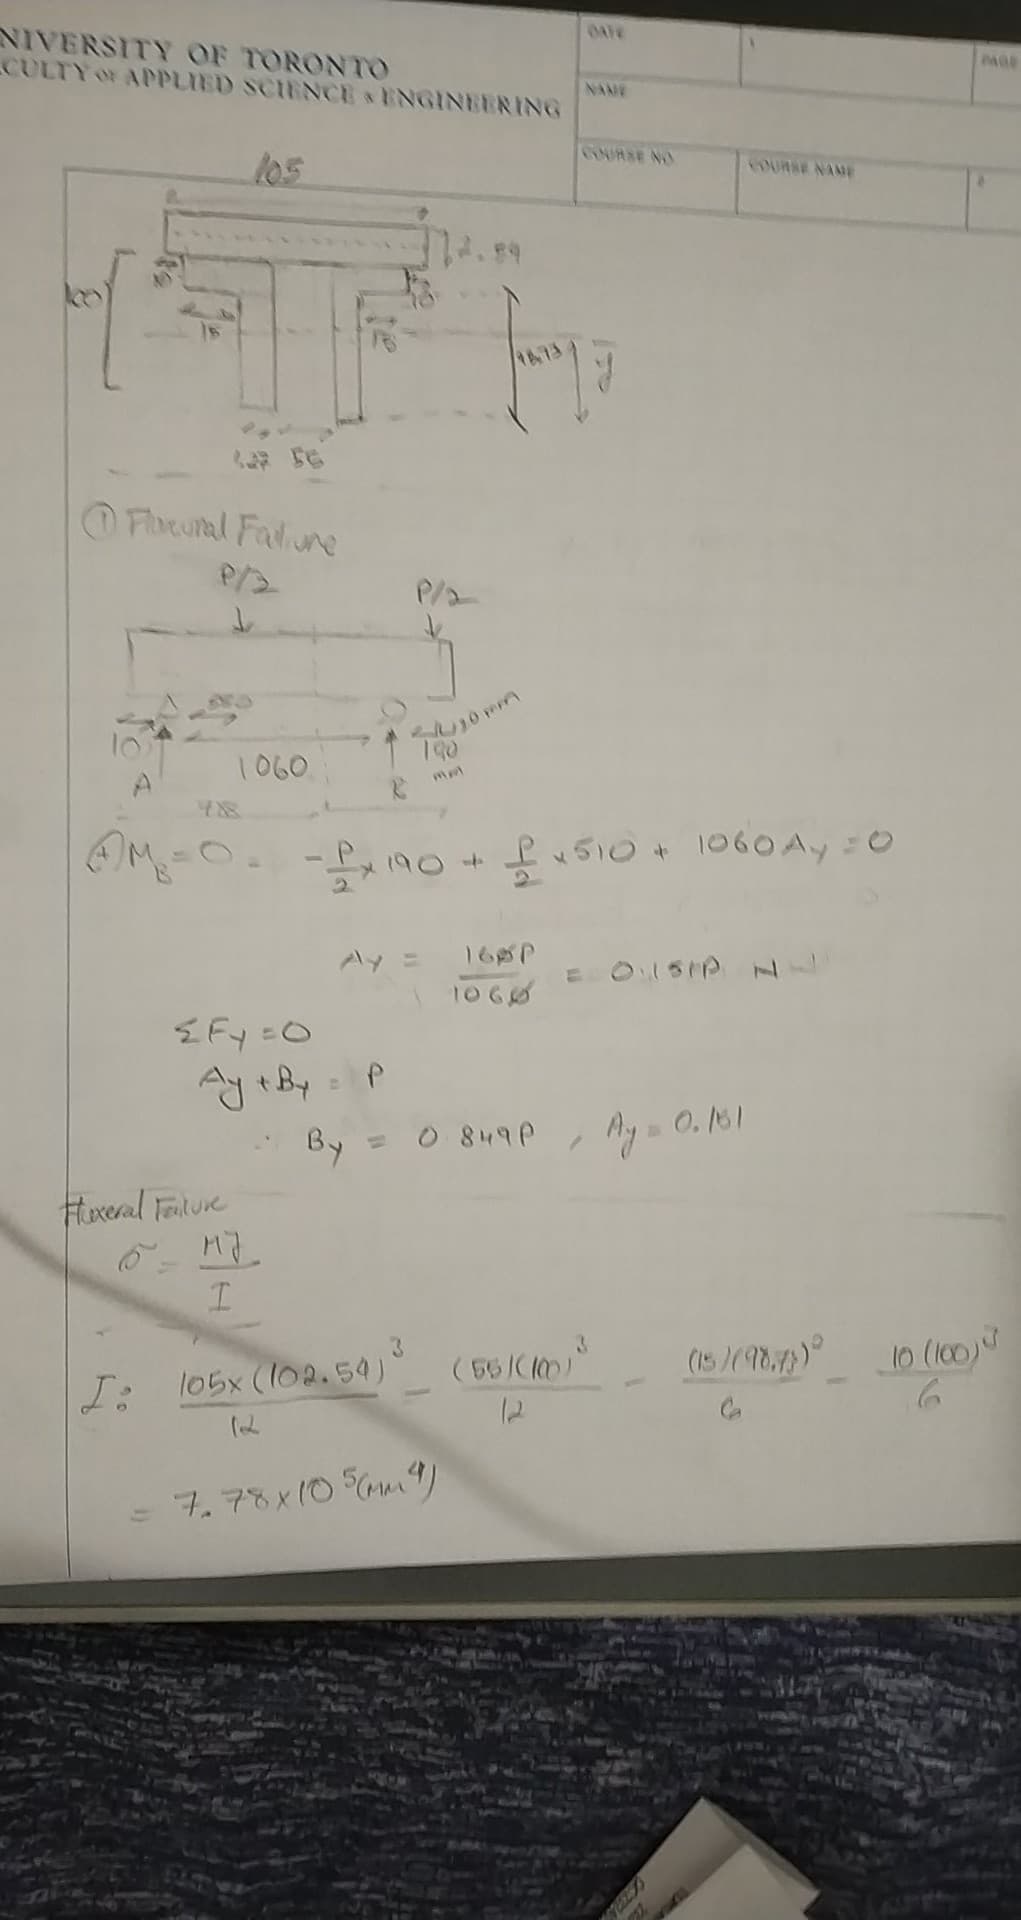 NIVERSITY OF TORONTO
CULTY OF APPLIED SCIENCE & ENGINEERING
DATE
PAGE
NAME
COURSE NO
COURSE NAME
105
2.54
100
10
10
15
15
98.73
y̅
1.27 55
① Flexural Failure
P/2
P/2
10
1060
190
mm
A
B
+ M_B = 0 = -P/2 x 190 + P/2 x 510 + 1060 Ay = 0
Ay = 160P/1060 = 0.151P N
ΣFy = 0
Ay + By = P
∴ By = 0.849P , Ay = 0.151
Flexeral Failure
σ = My/I
I: 105x(102.54)³/12 - (55)(100)³/12 - (15)(98.73)³/6 - 10(100)³/6
= 7.78x10⁵(mm⁴)